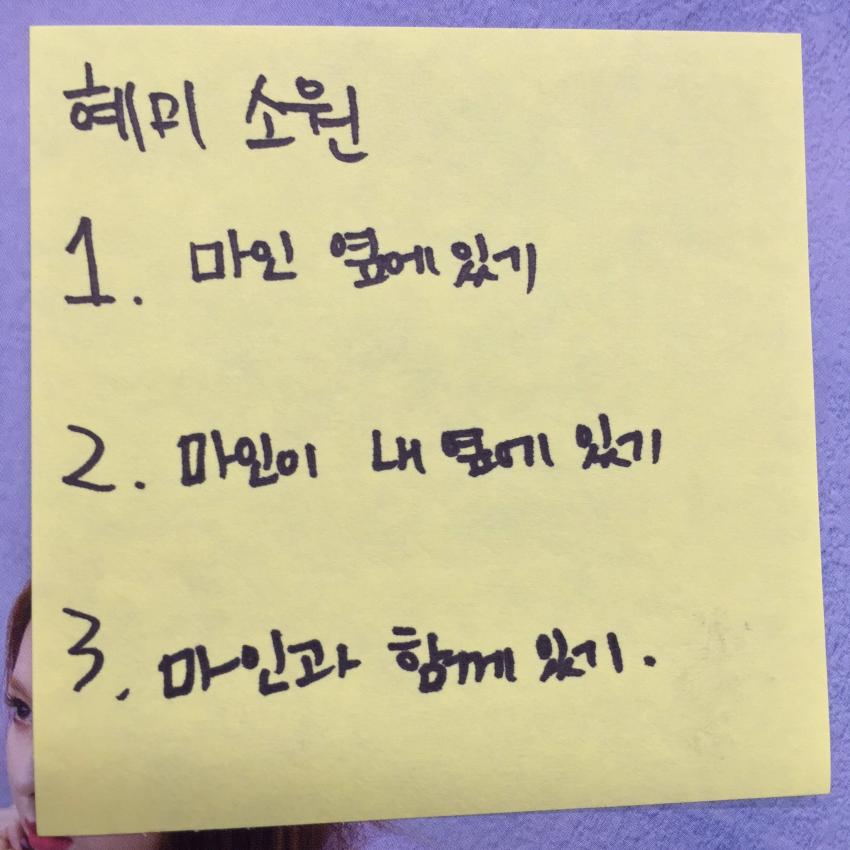 혜미 소원
1. 마인 옆에 있기
2. 마인이 내 옆에 있기
3. 마인과 함께 있기.